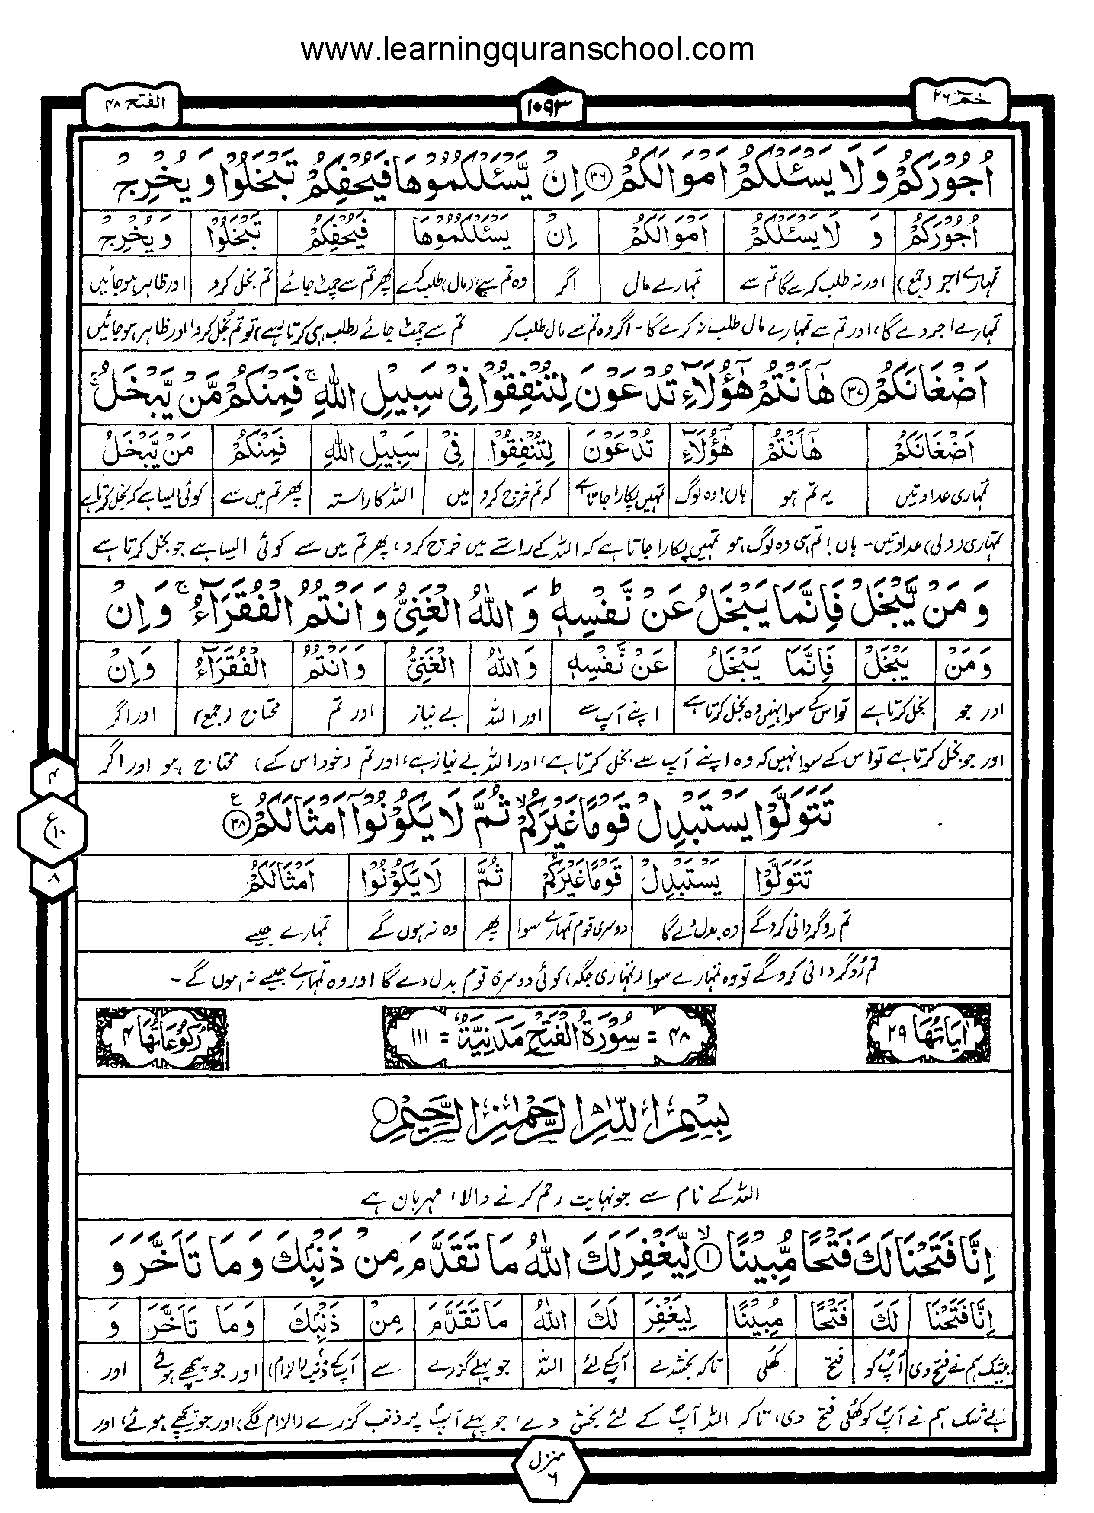 www.learningquranschool.com
حٰمٓ ۲۶
۱۰۹۳
الفتح ۴۸
اُجُوْرَكُمْ وَ لَا يَسْـَٔلْكُمْ اَمْوَالَكُمْ ﴿۳۶﴾ اِنْ يَّسْـَٔلْكُمُوْهَا فَيُحْفِكُمْ تَبْخَلُوْا وَ يُخْرِجْ
اُجُوْرَكُمْ وَ لَا يَسْـَٔلْكُمْ اَمْوَالَكُمْ اِنْ يَسْـَٔلْكُمُوْهَا فَيُحْفِكُمْ تَبْخَلُوْا وَ يُخْرِجْ
تمہارے اجر (جمع) اور نہ طلب کرے گا تم سے تمہارے مال اگر وہ تم سے (مال) طلب کرے پھر تم سے چمٹ جائے تم بخل کرو اور ظاہر ہو جائیں
تمہارے اجر دے گا، اور تم سے تمہارے مال طلب نہ کرے گا۔ اگر وہ تم سے مال طلب کر تم سے چمٹ جائے (طلب ہی کرتا رہے) تو تم بخل کرو اور ظاہر ہو جائیں
اَضْغَانَكُمْ ﴿۳۷﴾ هٰٓاَنْتُمْ هٰٓؤُلَآءِ تُدْعَوْنَ لِتُنْفِقُوْا فِىْ سَبِيْلِ اللّٰهِ ۚ فَمِنْكُمْ مَّنْ يَّبْخَلُ ۚ
اَضْغَانَكُمْ هٰٓاَنْتُمْ هٰٓؤُلَآءِ تُدْعَوْنَ لِتُنْفِقُوْا فِىْ سَبِيْلِ اللّٰهِ فَمِنْكُمْ مَنْ يَّبْخَلُ
تمہاری عداوتیں یہ تم ہو ہاں! وہ لوگ تمہیں پکارا جاتا ہے کہ تم خرچ کرو میں اللہ کا راستہ پھر تم میں سے کوئی ایسا ہے کہ بخل کرتا ہے
تمہاری (دلی) عداوتیں۔ ہاں! تم ہی وہ لوگ ہو تمہیں پکارا جاتا ہے کہ اللہ کے راستے میں خرچ کرو، پھر تم میں سے کوئی ایسا ہے جو بخل کرتا ہے
وَ مَنْ يَّبْخَلْ فَاِنَّمَا يَبْخَلُ عَنْ نَّفْسِهٖ ؕ وَ اللّٰهُ الْغَنِىُّ وَ اَنْتُمُ الْفُقَرَآءُ ۚ وَ اِنْ
وَ مَنْ يَبْخَلْ فَاِنَّمَا يَبْخَلُ عَنْ نَّفْسِهٖ وَ اللّٰهُ الْغَنِىُّ وَ اَنْتُمُ الْفُقَرَآءُ وَ اِنْ
اور جو بخل کرتا ہے تو اس کے سوا نہیں وہ بخل کرتا ہے اپنے آپ سے اور اللہ بے نیاز اور تم محتاج (جمع) اور اگر
اور جو بخل کرتا ہے تو اس کے سوا نہیں کہ وہ اپنے آپ سے بخل کرتا ہے، اور اللہ بے نیاز ہے، اور تم (خود اس کے) محتاج ہو اور اگر
تَتَوَلَّوْا يَسْتَبْدِلْ قَوْمًا غَيْرَكُمْ ۙ ثُمَّ لَا يَكُوْنُوْٓا اَمْثَالَكُمْ ﴿۳۸﴾
۴
ع ۱۰
۸
تَتَوَلَّوْا يَسْتَبْدِلْ قَوْمًا غَيْرَكُمْ ثُمَّ لَا يَكُوْنُوْٓا اَمْثَالَكُمْ
تم روگردانی کرو گے وہ بدل دے گا دوسری قوم تمہارے سوا پھر وہ نہ ہوں گے تمہارے جیسے
تم روگردانی کرو گے تو وہ تمہارے سوا (تمہاری جگہ) کوئی دوسری قوم بدل دے گا اور وہ تمہارے جیسے نہ ہوں گے۔
اٰيَاتُهَا ۲۹
۴۸ = سُوْرَةُ الْفَتْحِ مَدَنِيَّةٌ = ۱۱۱
رُكُوْعَاتُهَا ۴
بِسْمِ اللّٰهِ الرَّحْمٰنِ الرَّحِيْمِ
اللہ کے نام سے جو نہایت رحم کرنے والا، مہربان ہے
اِنَّا فَتَحْنَا لَكَ فَتْحًا مُّبِيْنًا ﴿۱﴾ ۙ لِّيَغْفِرَ لَكَ اللّٰهُ مَا تَقَدَّمَ مِنْ ذَنْۢبِكَ وَ مَا تَاَخَّرَ وَ
اِنَّا فَتَحْنَا لَكَ فَتْحًا مُبِيْنًا لِيَغْفِرَ لَكَ اللّٰهُ مَا تَقَدَّمَ مِنْ ذَنْۢبِكَ وَ مَا تَاَخَّرَ وَ
بیشک ہم نے فتح دی آپ کو فتح کھلی تاکہ بخشدے آپ کے لئے اللہ جو پہلے گزرے سے آپ کے ذنب (الزام) اور جو پیچھے ہوئے اور
بے شک ہم نے آپ کو کھلی فتح دی، تاکہ اللہ آپ کے لئے بخش دے، جو پہلے آپ پر ذنب گزرے (الزام لگے) اور جو پیچھے ہوئے، اور
منزل ۶